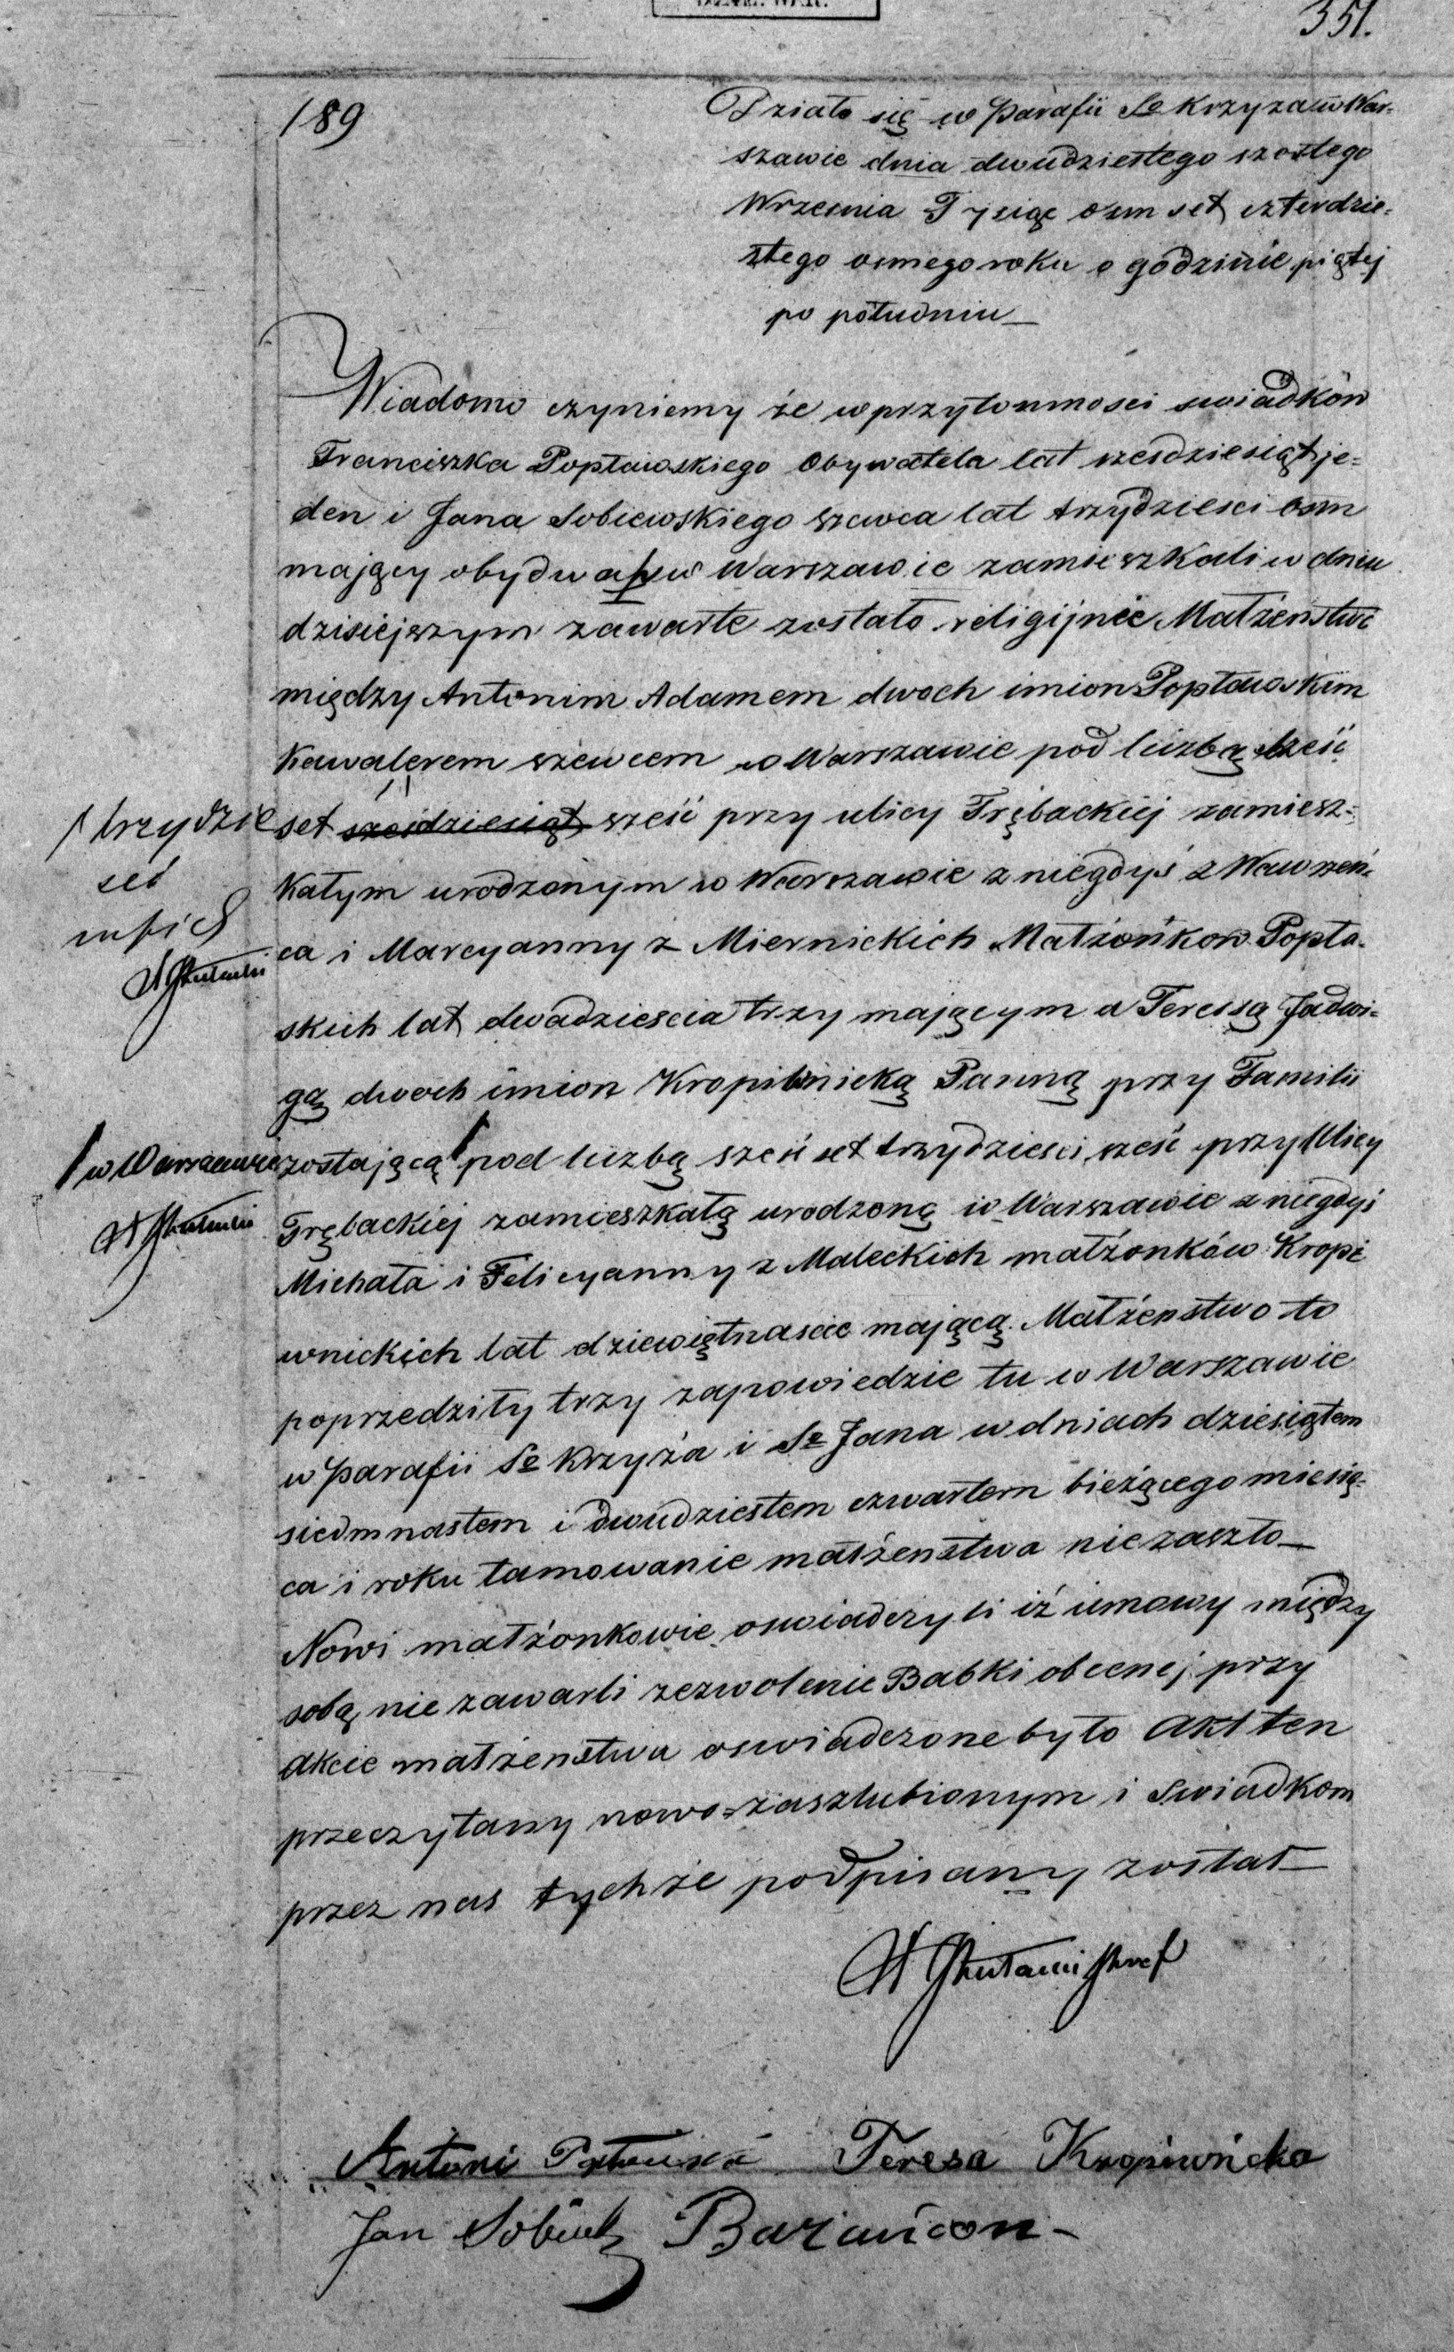 351.
189
Działo się w Parafii Sº Krzyża w War-
szawie dnia dwudziestego szostego
Wrzesnia Tysiąc osm set czterdzie-
stego osmego roku o godzinie piątej
po południu_
Wiadomo czyniemy że w przytomnosci swiadków
Franciszka Popławskiego Obywatela lat szesdziesiąt je-
den i Jana Sobiewskiego szewca lat trzydziesci osm
mający obydwa w Warszawie zamieszkali w dniu
dzisiejszym zawarte zostało religijnie Małżenstwo
między Antonim Adamem dwoch imion Popławskim
Kawalerem szewcem w Warszawie pod liczbą sześć
set szesdziesiąt sześć przy ulicy Trębackiej zamiesz-
kałym urodzonym w Warszawie z niegdyś z Wawrzeń-
ca i Marcyanny z Miernickich Małżonkow Popła-
skich lat dwadziescia trzy mającym a Teressą Jadwi-
gą dwoch imion Kropiwnicką Panną przy Familii
zostającą pod liczbą sześć set trzydziesci sześć przy Ulicy
Trębackiej zamieszkałą urodzoną w Warszawie z niegdyś
Michała i Felicyanny z Maleckich małżonków Kropi
wnickich lat dziewiętnascie mającą. Małżenstwo to
poprzedziły trzy zapowiedzie tu w Warszawie
w Parafii Sº Krzyża i Sº Jana w dniach dziesiątem
siedmnastem i dwudziestem czwartem bieżącego miesią-
ca i roku tamowanie małżenstwa nie zaszło_
Nowi małżonkowie oswiadczyli iż umowy między
sobą nie zawarli zezwolenie Babki obecnej przy
Akcie małżenstwa oswiadczone było Akt ten
przeczytany nowo zaszlubionym i Swiadkom
przez nas tychże podpisany został_
/ trzydzie
sci
/ w Warszawie
Antoni Teresa Kropiwnicka
Jan